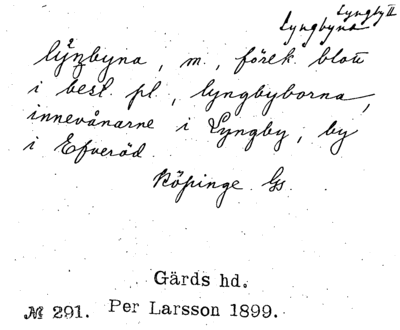 Lyngby II
Lyngbyna
lyngbyna, m., förek. blott
i best. pl., lyngbyborna,
innevånarne i Lyngby, by
i Efveröd.
Köpinge Gs.
Gärds hd.
№ 291. Per Larsson 1899.